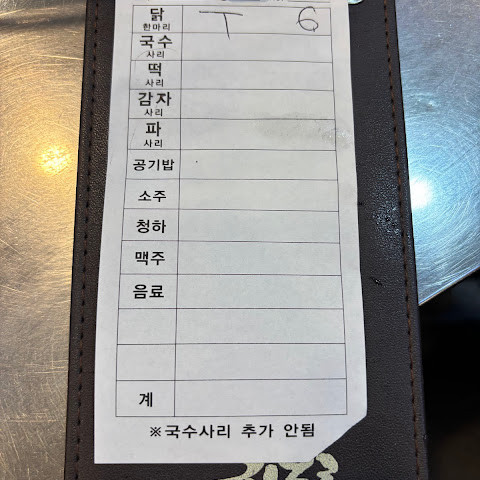 닭
한마리 T 6
국수
사리
떡
사리
감자
사리
파
사리
공기밥
소주
청하
맥주
음료
계
※국수사리 추가 안됨